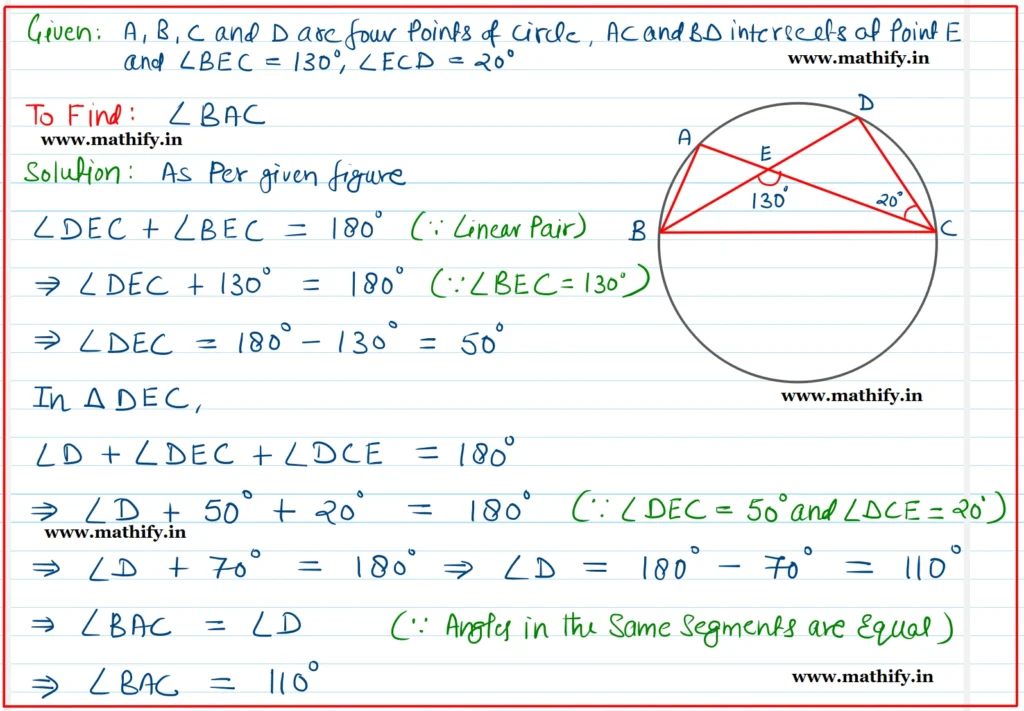 Given: A, B, C and D are four Points of Circle, AC and BD intersects at Point E
and ∠BEC = 130°, ∠ECD = 20°
www.mathify.in
To Find: ∠BAC
www.mathify.in
Solution: As Per given figure
∠DEC + ∠BEC = 180° (∵ Linear Pair)
⇒ ∠DEC + 130° = 180° (∵ ∠BEC = 130°)
⇒ ∠DEC = 180° - 130° = 50°
D
A
E
130°
20°
B
C
www.mathify.in
In Δ DEC,
∠D + ∠DEC + ∠DCE = 180°
⇒ ∠D + 50° + 20° = 180° (∵ ∠DEC = 50° and ∠DCE = 20°)
www.mathify.in
⇒ ∠D + 70° = 180° ⇒ ∠D = 180° - 70° = 110°
⇒ ∠BAC = ∠D (∵ Angles in the Same Segments are Equal)
⇒ ∠BAC = 110°
www.mathify.in